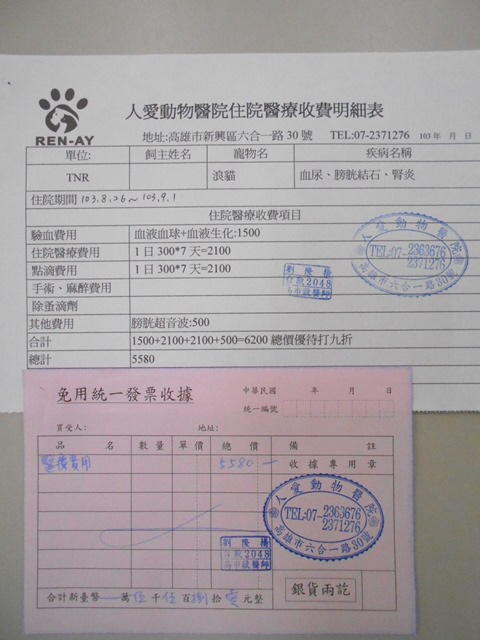 REN-AY
人愛動物醫院住院醫療收費明細表
地址:高雄市新興區六合一路30號 TEL:07-2371276 103年 月 日
單位: 飼主姓名 寵物名 疾病名稱
TNR 浪貓 血尿、膀胱結石、腎炎
住院期間 103.8.26~103.9.1
住院醫療收費項目
驗血費用 血液血球+血液生化:1500
住院醫療費用 1日300*7天=2100
點滴費用 1日300*7天=2100
手術、麻醉費用
除蚤滴劑
其他費用 膀胱超音波:500
合計 1500+2100+2100+500=6200 總價優待打九折
總計 5580
人愛動物醫院
TEL:07-2363676
2371276
高雄市六合一路30號
2048
免用統一發票收據
中華民國 年 月 日
統一編號
買受人: 地址:
品名 數量 單價 總價 備註
醫療費用 5580- 收據專用章
人愛動物醫院
TEL:07-2363676
2371276
高雄市六合一路30號
2048
合計新臺幣 萬伍千伍百捌拾零元整
銀貨兩訖